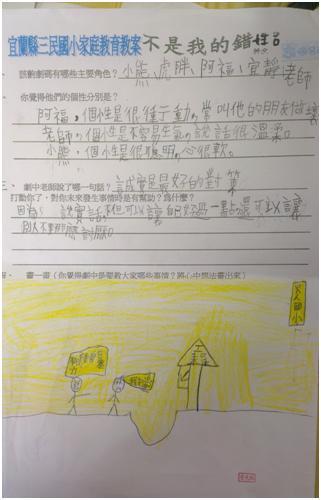 宜蘭縣三民國小家庭教育教案不是我的錯
該齣劇碼有哪些主要角色？小熊、虎胖、阿福、宜靜、
老師
你覺得他們的個性分別是？
阿福，個性是很衝動，常叫他的朋友做壞
老師，個性是不容易生氣，說話很溫柔。
小熊，個性是很聰明，心很軟。
三、劇中老師說了哪一句話？言成實是最好的對策
打動你了，對你未來發生事情時是有幫助？為什麼？
因為說實話，不但可以讓自己好過一點，還可以讓
別人不會那麼討厭。
四、畫一畫（你覺得劇中是要教大家哪些事情？將心中想法畫出來）